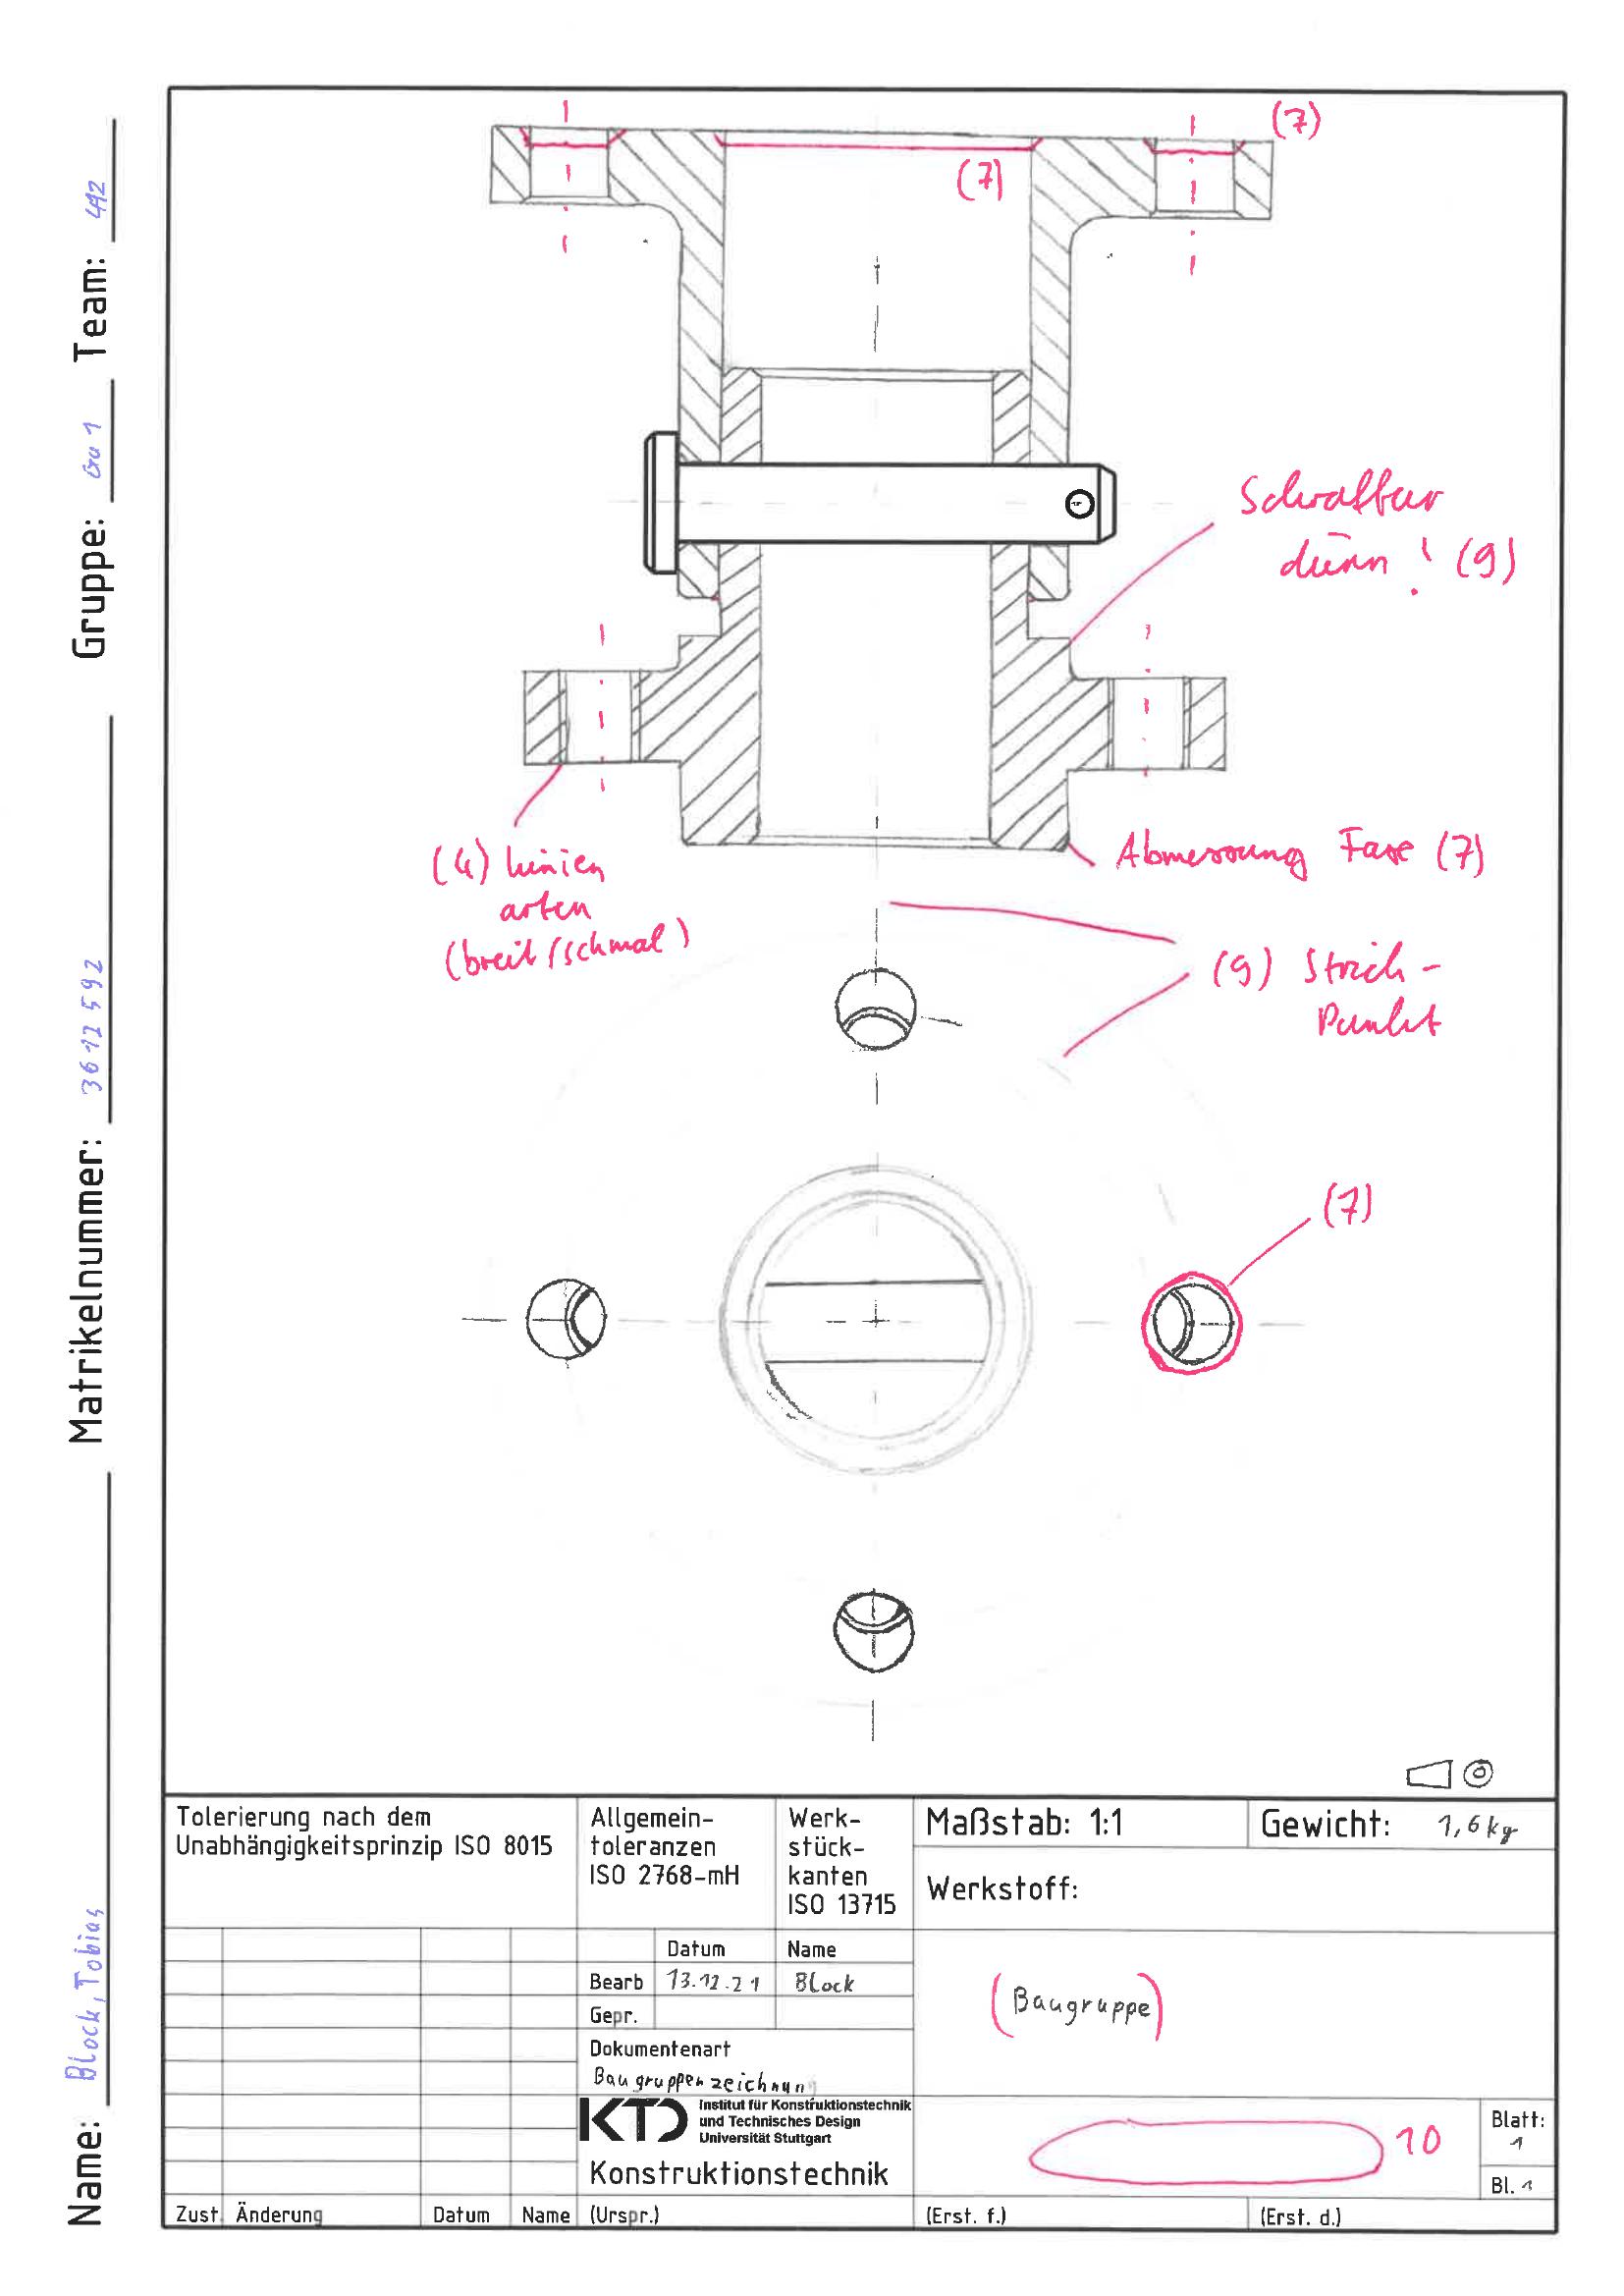 (7)
(7)
Team: 492
Gruppe: Gu 1
Schraffur
dünn! (9)
(4) Linien
arten
(breit/schmal)
Abmessung Fase (7)
(9) Strich-
Punkt
Matrikelnummer: 3612592
(7)
Name: Block, Tobias
Tolerierung nach dem
Unabhängigkeitsprinzip ISO 8015
Allgemein-
toleranzen
ISO 2768-mH
Werk-
stück-
kanten
ISO 13715
Maßstab: 1:1
Gewicht: 1,6kg
Werkstoff:
Datum Name
Bearb 13.12.21 Block
Gepr.
(Baugruppe)
Dokumentenart
Baugruppenzeichnung
KTD Institut für Konstruktionstechnik
und Technisches Design
Universität Stuttgart
Konstruktionstechnik
10
Blatt:
1
Bl. 1
Zust. Änderung Datum Name (Urspr.) (Erst. f.) (Erst. d.)